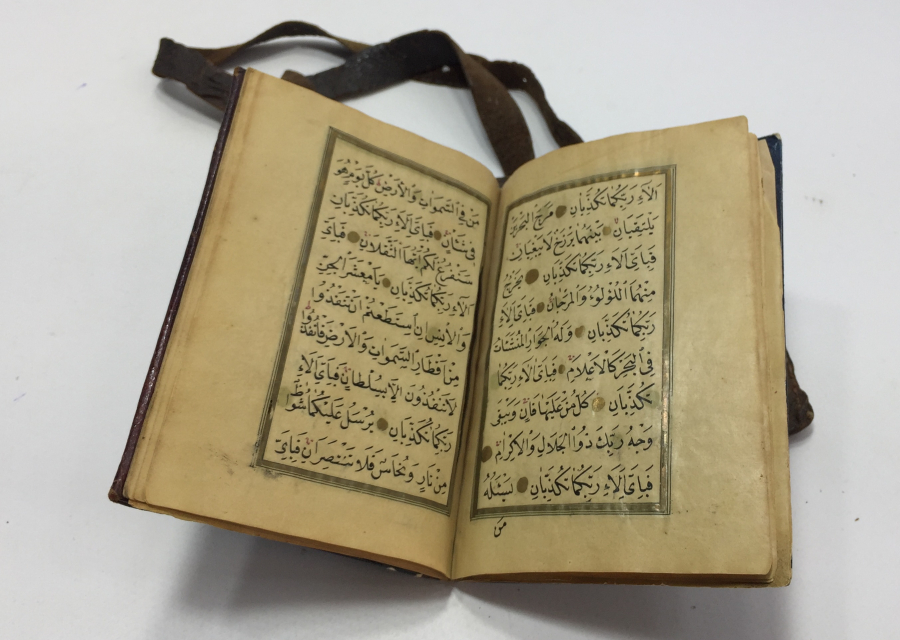 اٰلَاءِ رَبِّكُمَا تُكَذِّبَانِ مَرَجَ الْبَحْرَيْنِ
يَلْتَقِيَانِ بَيْنَهُمَا بَرْزَخٌ لَا يَبْغِيَانِ
فَبِاَيِّ اٰلَاءِ رَبِّكُمَا تُكَذِّبَانِ يَخْرُجُ
مِنْهُمَا اللُّؤْلُؤُ وَالْمَرْجَانُ فَبِاَيِّ اٰلَاءِ
رَبِّكُمَا تُكَذِّبَانِ وَلَهُ الْجَوَارِ الْمُنْشَئَاتُ
فِي الْبَحْرِ كَالْاَعْلَامِ فَبِاَيِّ اٰلَاءِ رَبِّكُمَا
تُكَذِّبَانِ كُلُّ مَنْ عَلَيْهَا فَانٍ وَيَبْقٰى
وَجْهُ رَبِّكَ ذُو الْجَلَالِ وَالْاِكْرَامِ
فَبِاَيِّ اٰلَاءِ رَبِّكُمَا تُكَذِّبَانِ يَسْئَلُهُ
مَنْ
مَنْ فِي السَّمٰوَاتِ وَالْاَرْضِ كُلَّ يَوْمٍ هُوَ
فِي شَأْنٍ فَبِاَيِّ اٰلَاءِ رَبِّكُمَا تُكَذِّبَانِ
سَنَفْرُغُ لَكُمْ اَيُّهَا الثَّقَلَانِ فَبِاَيِّ
اٰلَاءِ رَبِّكُمَا تُكَذِّبَانِ يَا مَعْشَرَ الْجِنِّ
وَالْاِنْسِ اِنِ اسْتَطَعْتُمْ اَنْ تَنْفُذُوا
مِنْ اَقْطَارِ السَّمٰوَاتِ وَالْاَرْضِ فَانْفُذُوا
لَا تَنْفُذُونَ اِلَّا بِسُلْطَانٍ فَبِاَيِّ اٰلَاءِ
رَبِّكُمَا تُكَذِّبَانِ يُرْسَلُ عَلَيْكُمَا شُوَاظٌ
مِنْ نَارٍ وَنُحَاسٌ فَلَا تَنْتَصِرَانِ فَبِاَيِّ